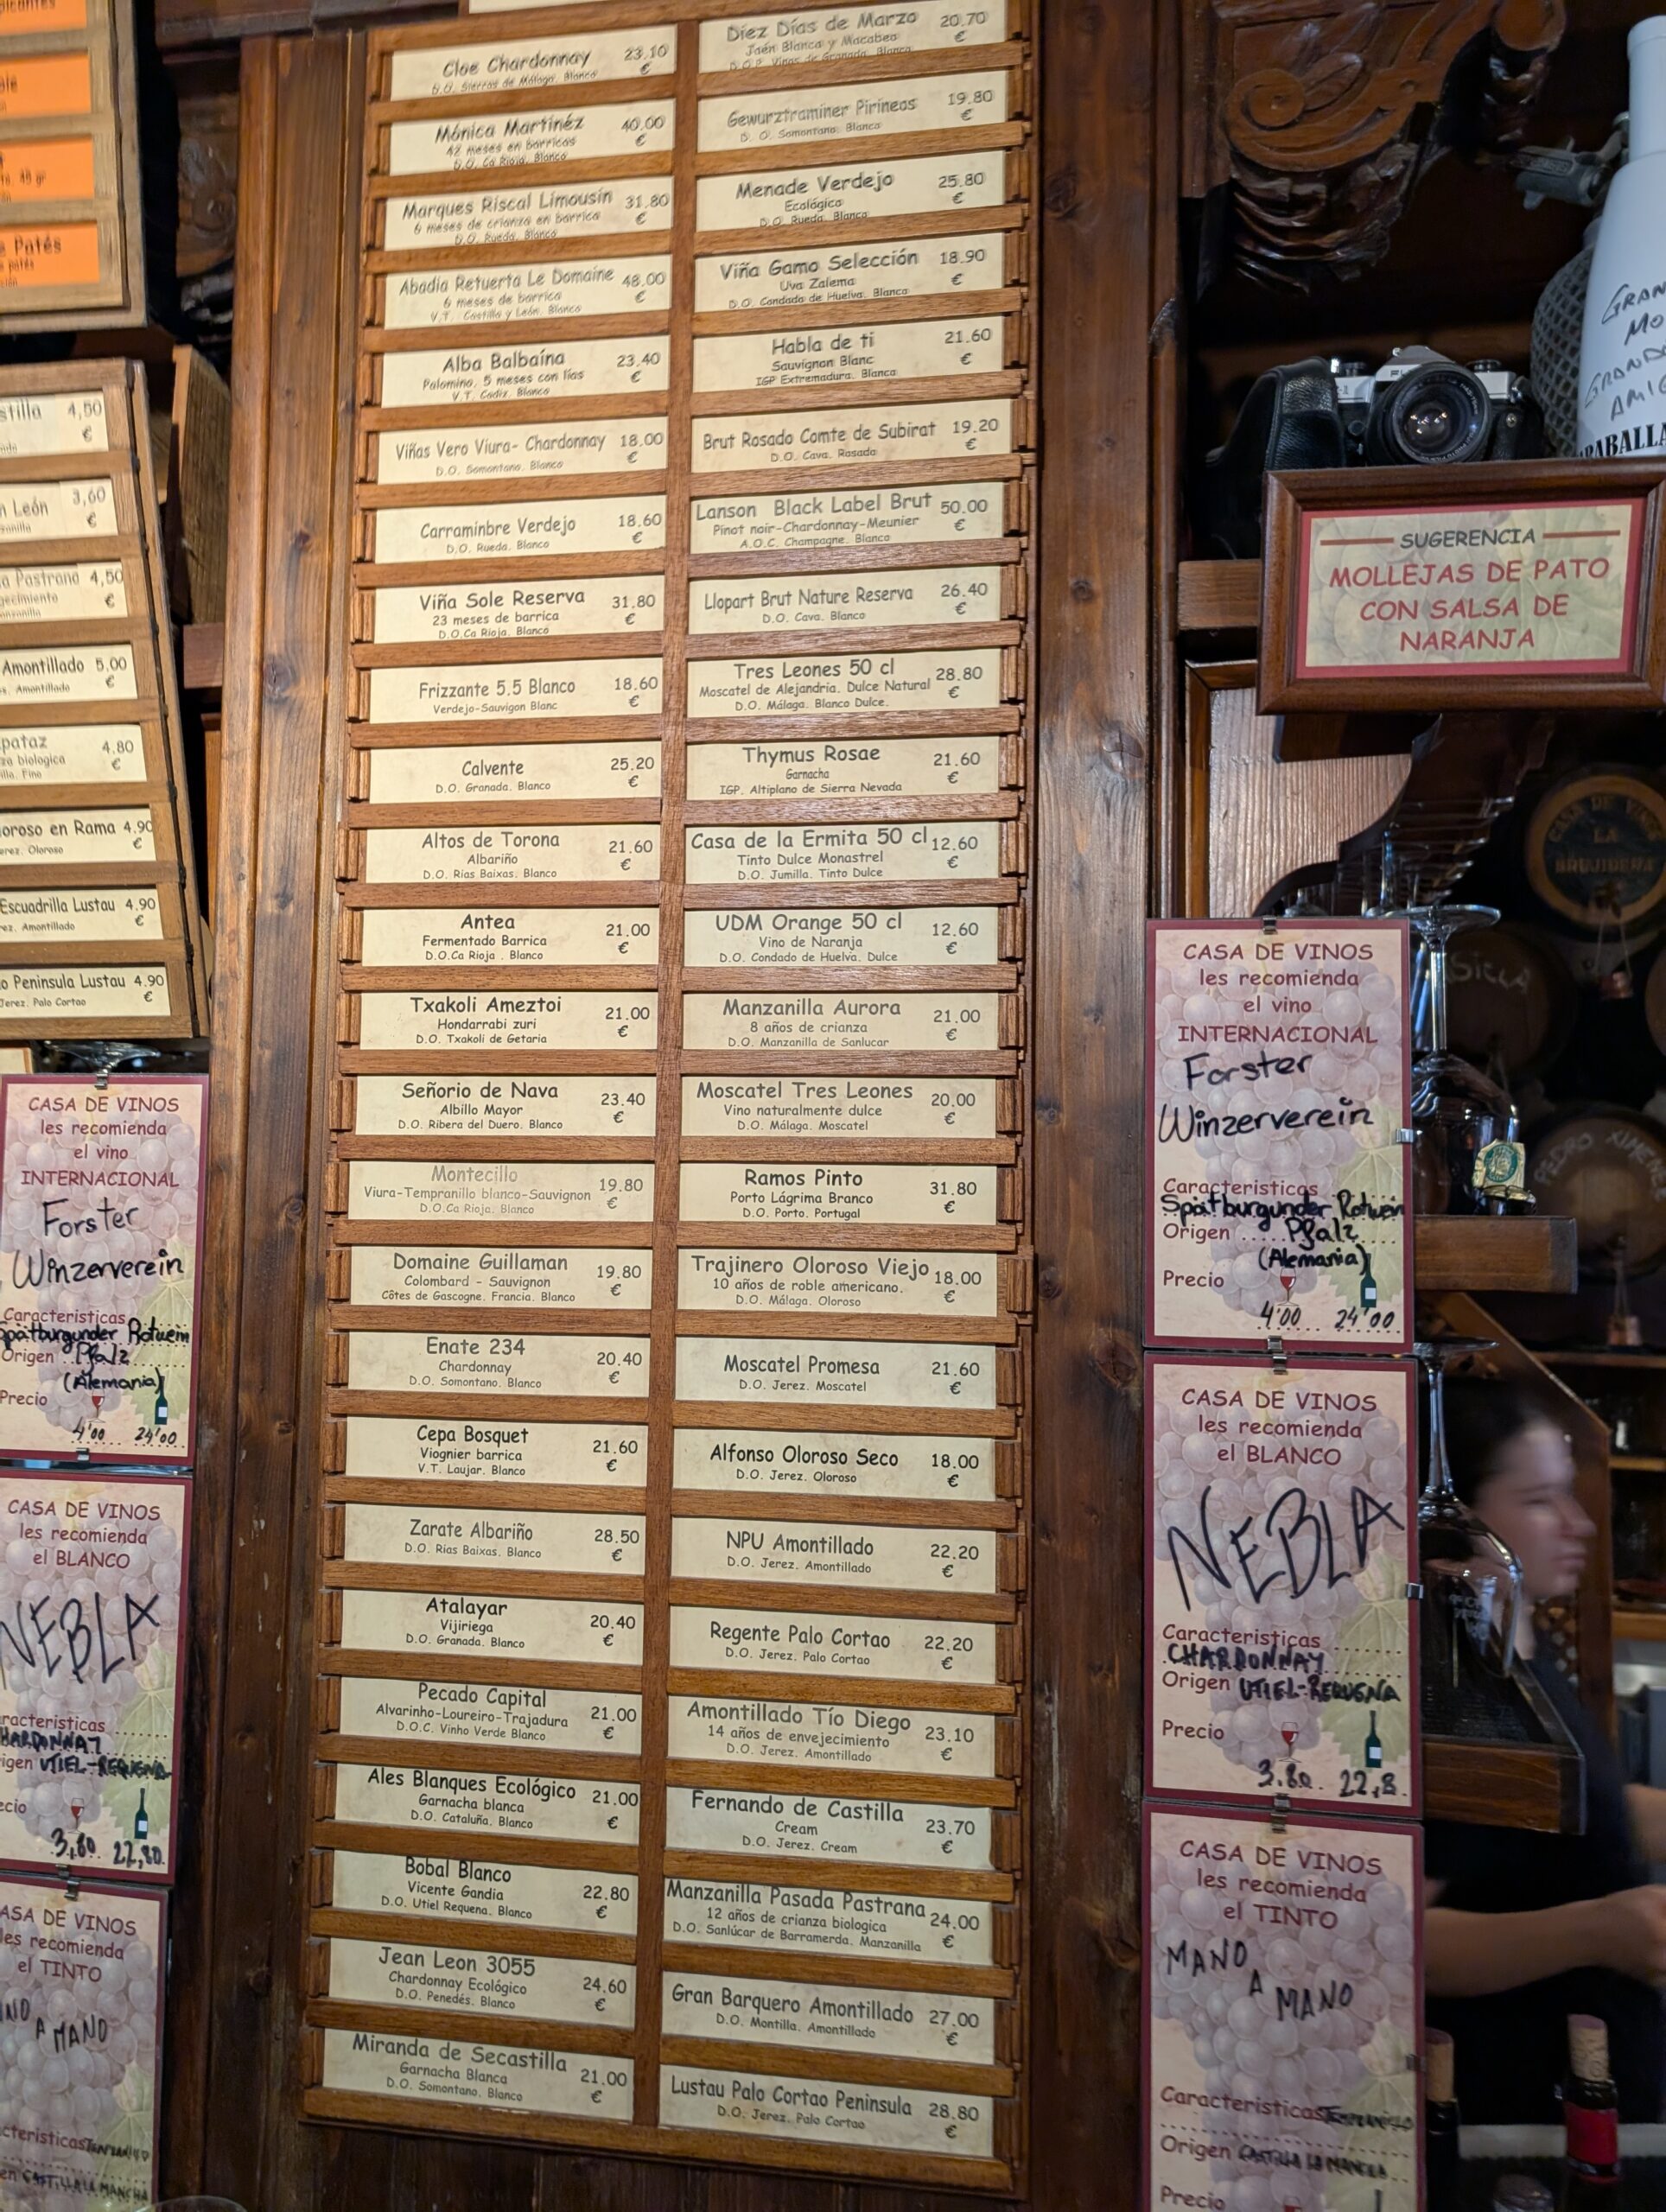 picantes
ble
45 gr
e Patés
patés
stilla 4,50
€
n León 3,60
€
a Pastrana 4,50
€
Amontillado 5.00
€
Amontillado
pataz 4.80
za biologica €
Fino
oroso en Rama 4.90
erez. Oloroso €
Escuadrilla Lustau 4.90
ez. Amontillado €
o Peninsula Lustau 4.90
Jerez. Palo Cortao €
CASA DE VINOS
les recomienda
el vino
INTERNACIONAL
Forster
Winzerverein
Caracteristicas
Spätburgunder Rotwein
Origen Pfalz
(Alemania)
Precio
4'00 24'00
CASA DE VINOS
les recomienda
el BLANCO
NEBLA
racteristicas
HARDONNAY
igen UTIEL-REQUENA
ecio
3,80 22,80
ASA DE VINOS
les recomienda
el TINTO
NO
A MANO
cteristicas TEMPRANILLO
en CASTILLA LA MANCHA
Cloe Chardonnay 23.10
D.O. Sierras de Málaga. Blanco €
Mónica Martínez 40.00
42 meses en barricas €
D.O. Ca Rioja. Blanco
Marques Riscal Limousín 31.80
6 meses de crianza en barrica €
D.O. Rueda. Blanco
Abadia Retuerta Le Domaine 48.00
6 meses de barrica €
V.T. Castilla y León. Blanco
Alba Balbaína 23.40
Palomino. 5 meses con lías €
V.T. Cadiz. Blanco
Viñas Vero Viura- Chardonnay 18.00
D.O. Somontano. Blanco €
Carraminbre Verdejo 18.60
D.O. Rueda. Blanco €
Viña Sole Reserva 31.80
23 meses de barrica €
D.O.Ca Rioja. Blanco
Frizzante 5.5 Blanco 18.60
Verdejo-Sauvigon Blanc €
Calvente 25.20
D.O. Granada. Blanco €
Altos de Torona 21.60
Albariño €
D.O. Rias Baixas. Blanco
Antea 21.00
Fermentado Barrica €
D.O.Ca Rioja . Blanco
Txakoli Ameztoi 21.00
Hondarrabi zuri €
D.O. Txakoli de Getaria
Señorio de Nava 23.40
Albillo Mayor €
D.O. Ribera del Duero. Blanco
Montecillo 19.80
Viura-Tempranillo blanco-Sauvignon €
D.O.Ca Rioja. Blanco
Domaine Guillaman 19.80
Colombard - Sauvignon €
Côtes de Gascogne. Francia. Blanco
Enate 234 20.40
Chardonnay €
D.O. Somontano. Blanco
Cepa Bosquet 21.60
Viognier barrica €
V.T. Laujar. Blanco
Zarate Albariño 28.50
D.O. Rias Baixas. Blanco €
Atalayar 20.40
Vijiriega €
D.O. Granada. Blanco
Pecado Capital 21.00
Alvarinho-Loureiro-Trajadura €
D.O.C. Vinho Verde Blanco
Ales Blanques Ecológico 21.00
Garnacha blanca €
D.O. Cataluña. Blanco
Bobal Blanco 22.80
Vicente Gandia €
D.O. Utiel Requena. Blanco
Jean Leon 3055 24.60
Chardonnay Ecológico €
D.O. Penedés. Blanco
Miranda de Secastilla 21.00
Garnacha Blanca €
D.O. Somontano. Blanco
Diez Días de Marzo 20.70
Jaén Blanca y Macabeo €
D.O.P. Vinos de Granada. Blanco
Gewurztraminer Pirineos 19.80
D. O. Somontano. Blanco €
Menade Verdejo 25.80
Ecológico €
D.O. Rueda. Blanco
Viña Gamo Selección 18.90
Uva Zalema €
D.O. Condado de Huelva. Blanco
Habla de ti 21.60
Sauvignon Blanc €
IGP Extremadura. Blanco
Brut Rosado Comte de Subirat 19.20
D.O. Cava. Rosado €
Lanson Black Label Brut 50.00
Pinot noir-Chardonnay-Meunier €
A.O.C. Champagne. Blanco
Llopart Brut Nature Reserva 26.40
D.O. Cava. Blanco €
Tres Leones 50 cl 28.80
Moscatel de Alejandria. Dulce Natural €
D.O. Málaga. Blanco Dulce.
Thymus Rosae 21.60
Garnacha €
IGP. Altiplano de Sierra Nevada
Casa de la Ermita 50 cl 12.60
Tinto Dulce Monastrel €
D.O. Jumilla. Tinto Dulce
UDM Orange 50 cl 12.60
Vino de Naranja €
D.O. Condado de Huelva. Dulce
Manzanilla Aurora 21.00
8 años de crianza €
D.O. Manzanilla de Sanlucar
Moscatel Tres Leones 20.00
Vino naturalmente dulce €
D.O. Málaga. Moscatel
Ramos Pinto 31.80
Porto Lágrima Branco €
D.O. Porto. Portugal
Trajinero Oloroso Viejo 18.00
10 años de roble americano. €
D.O. Málaga. Oloroso
Moscatel Promesa 21.60
D.O. Jerez. Moscatel €
Alfonso Oloroso Seco 18.00
D.O. Jerez. Oloroso €
NPU Amontillado 22.20
D.O. Jerez. Amontillado €
Regente Palo Cortao 22.20
D.O. Jerez. Palo Cortao €
Amontillado Tío Diego 23.10
14 años de envejecimiento €
D.O. Jerez. Amontillado
Fernando de Castilla 23.70
Cream €
D.O. Jerez. Cream
Manzanilla Pasada Pastrana 24.00
12 años de crianza biologica €
D.O. Sanlúcar de Barramerda. Manzanilla
Gran Barquero Amontillado 27.00
D.O. Montilla. Amontillado €
Lustau Palo Cortao Peninsula 28.80
D.O. Jerez. Palo Cortao €
GRAN
MO
GRANDE
AMIG
SUGERENCIA
MOLLEJAS DE PATO
CON SALSA DE
NARANJA
CASA DE VINOS
LA
BREUIDERA
PEDRO XIMENEZ
CASA DE VINOS
les recomienda
el vino
INTERNACIONAL
Forster
Winzerverein
Caracteristicas
Spätburgunder Rotwein
Origen ..... Pfalz
(Alemania)
Precio
4'00 24'00
CASA DE VINOS
les recomienda
el BLANCO
NEBLA
Caracteristicas
CHARDONNAY
Origen UTIEL-REQUENA
Precio
3.80 22,8
CASA DE VINOS
les recomienda
el TINTO
MANO
A
MANO
Caracteristicas TEMPRANILLO
Origen CASTILLA LA MANCHA
Precio